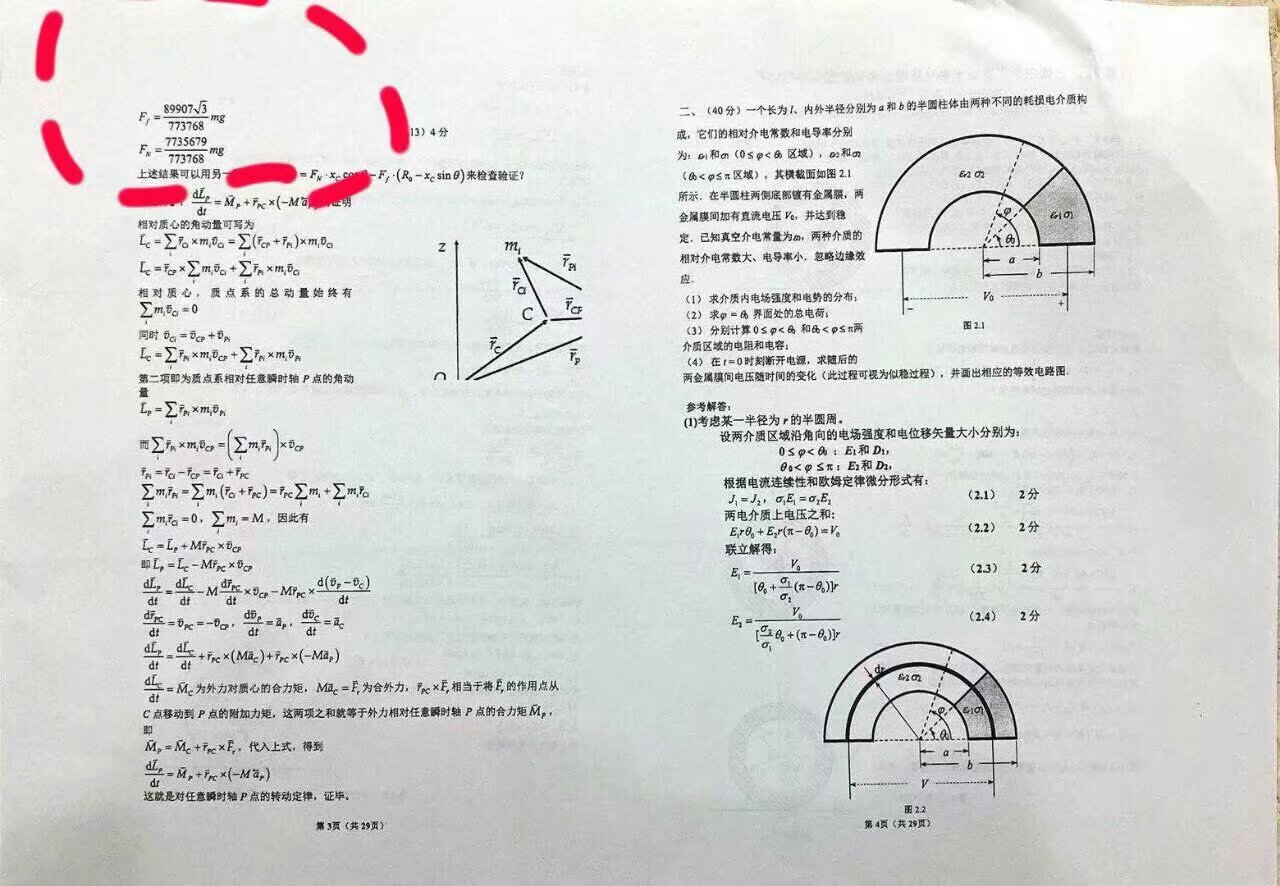 F_f = 89907√3/773768 mg
(13) 4分
F_N = 7735679/773768 mg
上述结果可以用另一 = F_N·x_C cos − F_f·(R_0 − x_C sin θ)来检查验证?
dL̄_P/dt = M̄_P + r̄_PC × (−M 证明
相对质心的角动量可写为
L̄_C = ∑_i r̄_Ci × m_i ῡ_Ci = ∑_i (r̄_CP + r̄_Pi) × m_i ῡ_Ci
L̄_C = r̄_CP × ∑_i m_i ῡ_Ci + ∑_i r̄_Pi × m_i ῡ_Ci
相对质心，质点系的总动量始终有
∑_i m_i ῡ_Ci = 0
同时 ῡ_Ci = ῡ_CP + ῡ_Pi
L̄_C = ∑_i r̄_Pi × m_i ῡ_CP + ∑_i r̄_Pi × m_i ῡ_Pi
第二项即为质点系相对任意瞬时轴 P 点的角动
量
L̄_P = ∑_i r̄_Pi × m_i ῡ_Pi
而 ∑_i r̄_Pi × m_i ῡ_CP = (∑_i m_i r̄_Pi) × ῡ_CP
r̄_Pi = r̄_Ci − r̄_CP = r̄_Ci + r̄_PC
∑_i m_i r̄_Pi = ∑_i m_i (r̄_Ci + r̄_PC) = r̄_PC ∑_i m_i + ∑_i m_i r̄_Ci
∑_i m_i r̄_Ci = 0，∑_i m_i = M，因此有
L̄_C = L̄_P + M r̄_PC × ῡ_CP
即 L̄_P = L̄_C − M r̄_PC × ῡ_CP
dL̄_P/dt = dL̄_C/dt − M dr̄_PC/dt × ῡ_CP − M r̄_PC × d(ῡ_P − ῡ_C)/dt
dr̄_PC/dt = ῡ_PC = −ῡ_CP，dῡ_P/dt = ā_P，dῡ_C/dt = ā_C
dL̄_P/dt = dL̄_C/dt + r̄_PC × (Mā_C) + r̄_PC × (−Mā_P)
dL̄_C/dt = M̄_C 为外力对质心的合力矩，Mā_C = F̄_r 为合外力，r̄_PC × F̄_r 相当于将 F̄_r 的作用点从
C 点移动到 P 点的附加力矩，这两项之和就等于外力相对任意瞬时轴 P 点的合力矩 M̄_P，
即
M̄_P = M̄_C + r̄_PC × F̄_r，代入上式，得到
dL̄_P/dt = M̄_P + r̄_PC × (−Mā_P)
这就是对任意瞬时轴 P 点的转动定律，证毕。
z
m_i
r̄_Pi
r̄_Ci
C
r̄_CP
r̄_C
r̄_P
第 3页（共 29页）
二、（40 分）一个长为 l、内外半径分别为 a 和 b 的半圆柱体由两种不同的耗损电介质构
成，它们的相对介电常数和电导率分别
为：εr1和σ1（0 ≤ φ < θ0 区域），εr2和σ2
（θ0 < φ ≤ π 区域），其横截面如图 2.1
所示．在半圆柱两侧底部镀有金属膜，两
金属膜间加有直流电压 V0，并达到稳
定．已知真空介电常量为ε0，两种介质的
相对介电常数大、电导率小．忽略边缘效
应．
（1） 求介质内电场强度和电势的分布；
（2） 求φ = θ0 界面处的总电荷；
（3） 分别计算 0 ≤ φ < θ0 和θ0 < φ ≤ π两
介质区域的电阻和电容；
（4） 在 t = 0 时刻断开电源，求随后的
两金属膜间电压随时间的变化（此过程可视为似稳过程），并画出相应的等效电路图．
εr2 σ2
εr1 σ1
φ
θ0
a
b
V0
−
+
图 2.1
参考解答：
(1)考虑某一半径为 r 的半圆周。
设两介质区域沿角向的电场强度和电位移矢量大小分别为：
0 ≤ φ < θ0 ；E1 和 D1，
θ0 < φ ≤ π；E2 和 D2，
根据电流连续性和欧姆定律微分形式有：
J_1 = J_2，σ_1E_1 = σ_2E_2 （2.1） 2 分
两电介质上电压之和：
E_1rθ_0 + E_2r(π − θ_0) = V_0 （2.2） 2 分
联立解得：
E_1 = V_0/([θ_0 + σ_1/σ_2 (π − θ_0)]r) （2.3） 2 分
E_2 = V_0/([σ_2/σ_1 θ_0 + (π − θ_0)]r) （2.4） 2 分
dr
εr2 σ2
εr1 σ1
φ
θ0
a
b
V
图 2.2
第 4页（共 29页）